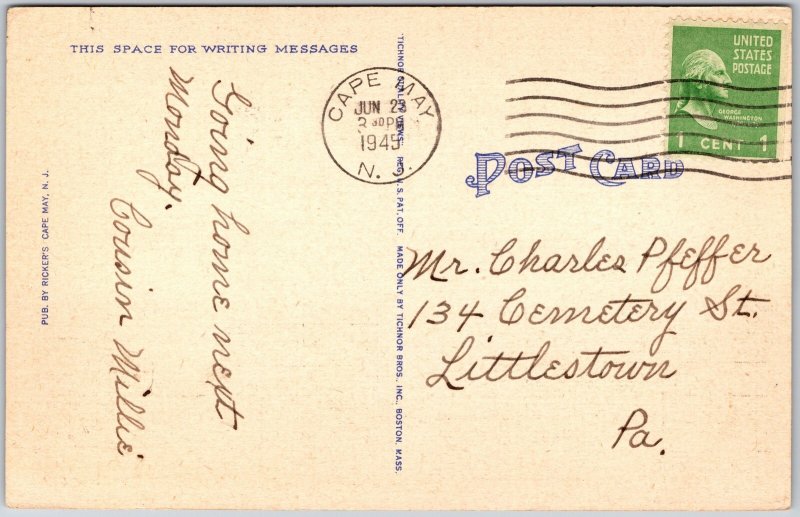 THIS SPACE FOR WRITING MESSAGES
Going home next
Monday.
Cousin Millie
PUB. BY RICKER'S CAPE MAY, N. J.
TICHNOR QUALITY VIEWS. REG. U. S. PAT. OFF. MADE ONLY BY TICHNOR BROS., INC., BOSTON, MASS.
CAPE MAY
JUN 23
1945
N. J.
UNITED
STATES
POSTAGE
GEORGE
WASHINGTON
1 CENT 1
POST CARD
Mr. Charles Pfeffer
134 Cemetery St.
Littlestown
Pa.